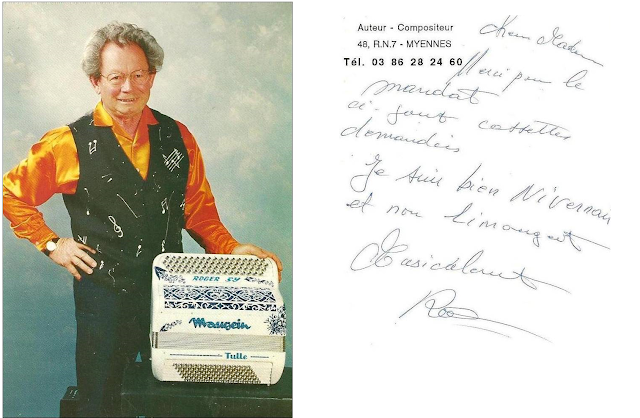 ROGER SY
Maugein
Tulle
Auteur - Compositeur
48, R.N.7 - MYENNES
Tél. 03 86 28 24 60
Chère Madame
Merci pour le
mandat
ci-joint cassettes
demandées
Je suis bien Nivernais
et non Limougeot
Musicalement